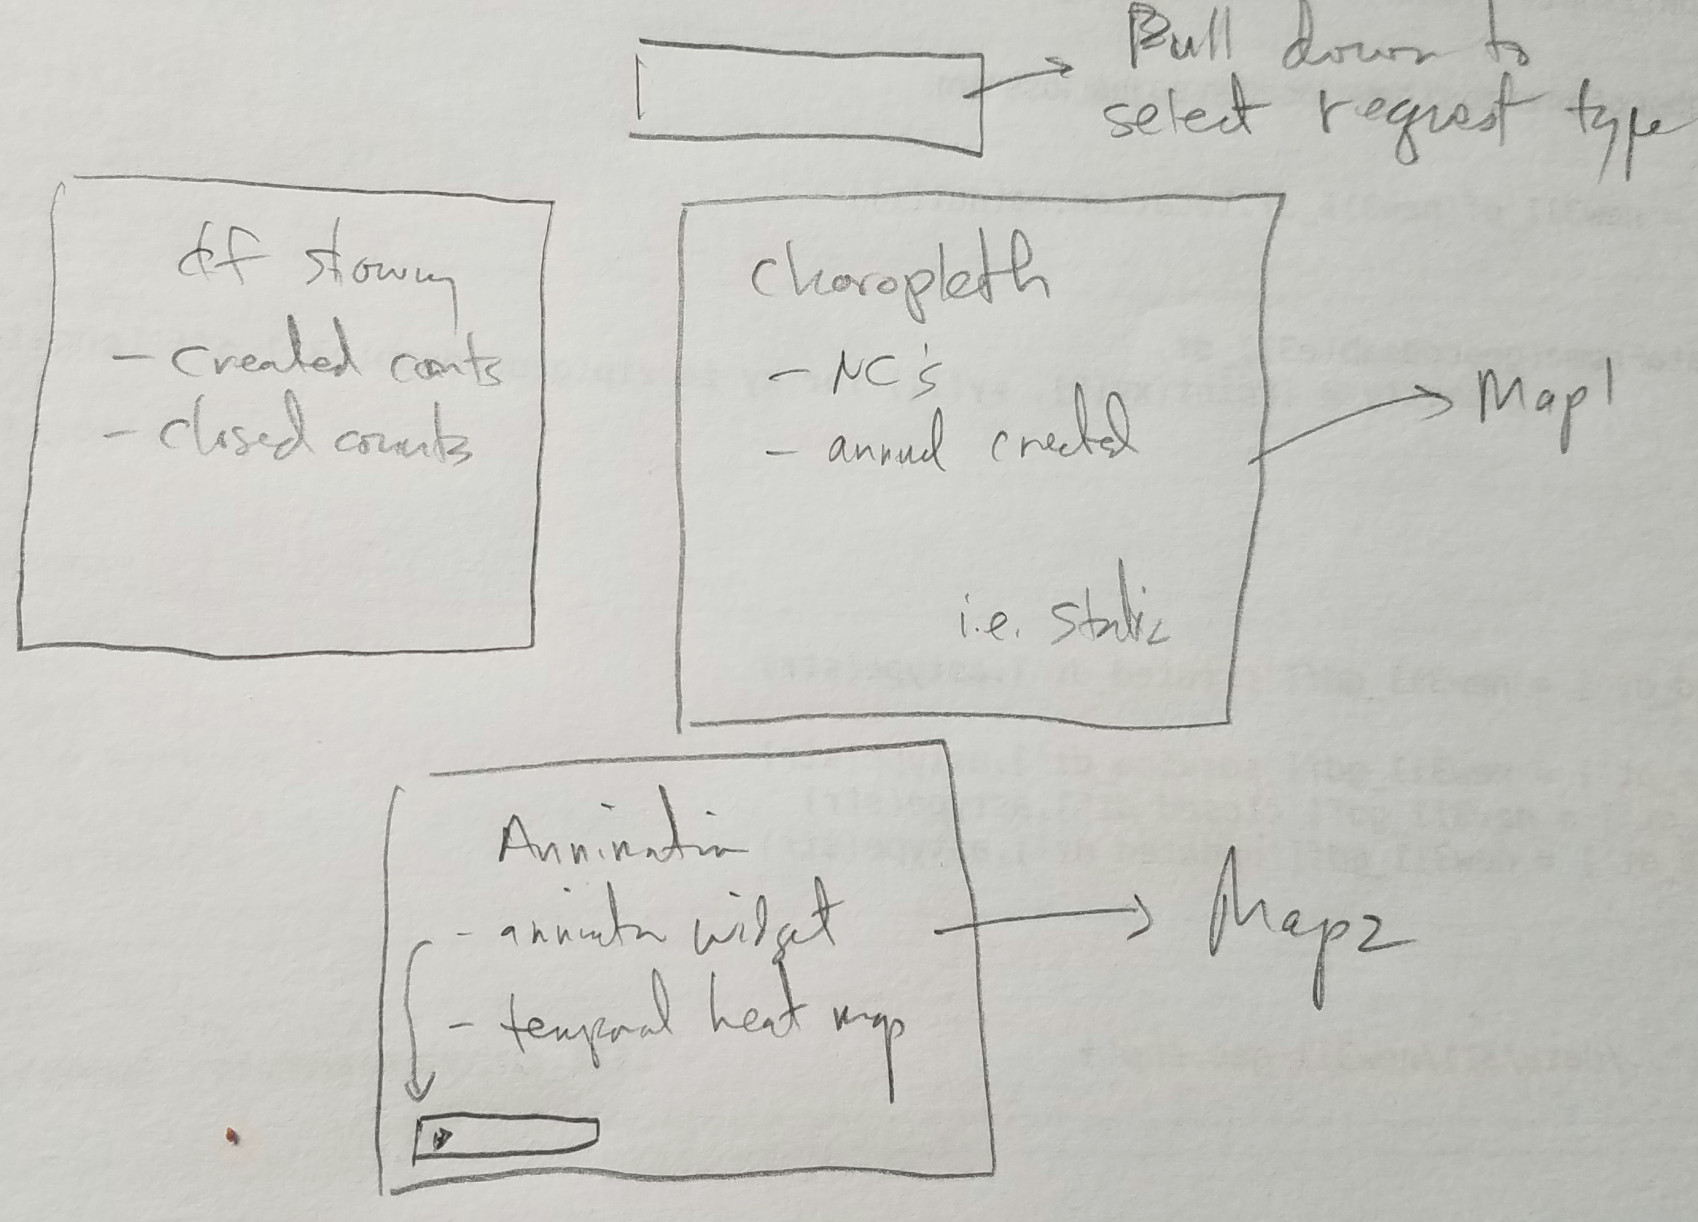 Pull down to
select request type
df showing
- created counts
- closed counts
Choropleth
- NC's
- annual created
i.e. static
Map1
Annimation
- animation widget
- temporal heat map
Map2